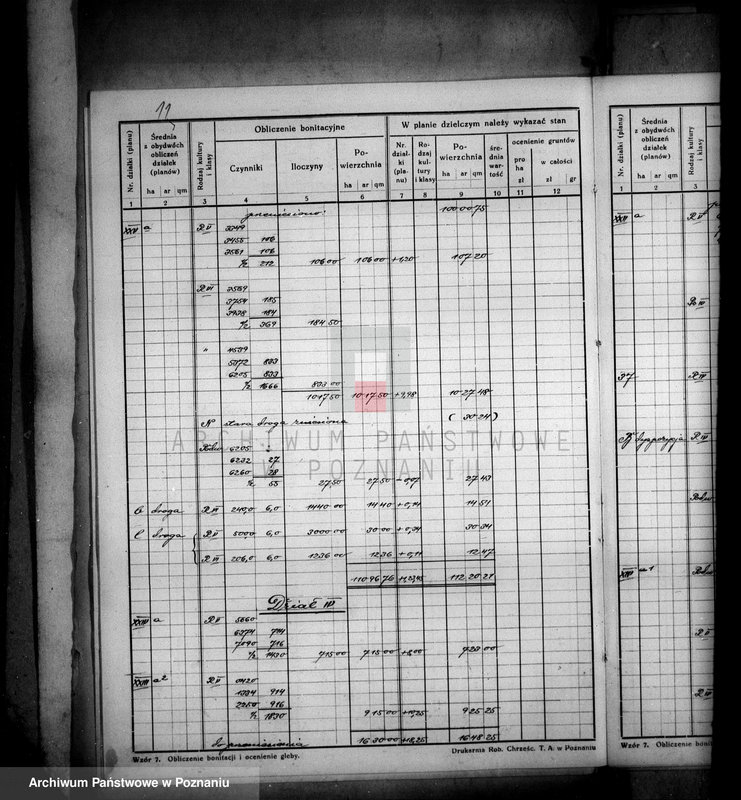 11
Nr. działki (planu)
Średnia z obydwóch obliczeń działek (planów)
ha ar qm
Rodzaj kultury i klasy
Obliczenie bonitacyjne
Czynniki
Iloczyny
Powierzchnia
ha ar qm
W planie dzielczym należy wykazać stan
Nr. działki (planu)
Rodzaj kultury i klasy
Powierzchnia
ha ar qm
średnia wartość
ocenienie gruntów
pro ha
zł
w całości
zł gr
1 2 3 4 5 6 7 8 9 10 11 12
przeniesiono: 100 00 75
XXIV a R V 3349
3455 106
3561 106
1/2 212 106 00 1 06 00 +1,20 1 07 20
R VI 3569
3754 185
3938 184
1/2 369 184 50
" 4539
5372 833
6205 833
1/2 1666 833 00
1017 50 10 17 50 +9,98 10 27 48
N stara droga zniesiona ( 30 24 )
6205
6232 27
6260 28
1/2 55 27,50 27 50 -0,07 27 43
b droga R VI 240,0 6,0 1440 00 14 40 +0,14 14 54
c droga R V 500,0 6,0 3000 00 30 00 +0,34 30 34
R VI 206,0 6,0 1236 00 12 36 +0,11 12 47
110 96 76 112 20 21
Dział IV
XXIII a R V 5660
6374 714
7090 716
1/2 1430 715 00 7 15 00 +8,00 7 23 00
XXIII a2 R V 0420
1334 914
2250 916
1/2 1830 9 15 00 +10,25 9 25 25
Do przeniesienia 16 30 00 +18,25 16 48 25
Wzór 7. Obliczenie bonitacji i ocenienie gleby.
Drukarnia Rob. Chrześc. T. A. w Poznaniu
Nr. działki (planu)
Średnia z obydwóch obliczeń działek (planów)
ha ar qm
Rodzaj kultury i klasy
1 2 3
a R V
R VI
R VI
dyspozycja R VI
a 1
R V
R VI
Wzór 7. Obliczenie bonit
ARCHIWUM PAŃSTWOWE
W POZNANIU
Archiwum Państwowe w Poznaniu